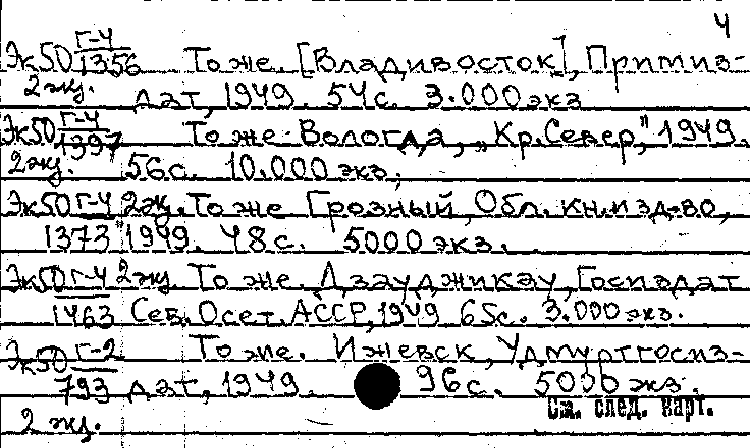 4
Эк50 Г-4/1356 То же. [Владивосток], Примиз-
2 эк. дат, 1949. 54 с. 3.000 экз
Эк50 Г-4/1397 То же. Вологда, „Кр. Север," 1949.
2 эк. 56 с. 10.000 экз.
Эк50 Г-4 2 эк. То же Грозный, Обл. кн. изд-во,
1373 1949. 48 с. 5000 экз.
Эк50 Г-4 2 эк. То же. Дзауджикау, Госиздат
1463 Сев. Осет. АССР, 1949 65 с. 3.000 экз.
Эк50 Г-2 То же. Ижевск, Удмуртгосиз-
793 дат, 1949. 96 с. 5000 экз.
См. след. карт.
2 эк.